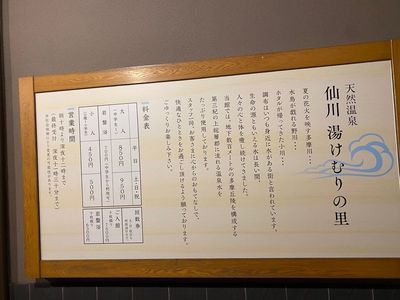 天然温泉
仙川 湯けむりの里
夏の花火を映す多摩川・・・
水鳥が戯れる野川・・・
ホタルが帰ってきた小川・・・
調布はいつも身近に水がある街と言われています。
生命の源ともいえる水は長い間、
人々の心と体を癒し続けてきました。
当館では、地下数百メートルの多摩丘陵を構成する
第三紀の上総層郡に流れる温泉水を
たっぷり使用しております。
スタッフ一同、お客さまに心からのおもてなしで、
快適なひとときをお過ごし頂けるよう願っております。
ごゆっくりお楽しみ下さい。
料金表
平日
土・日・祝
大人
850円
950円
岩盤浴
小人
450円
500円
回数券
ご入館
岩盤浴
営業時間
朝十時より深夜十二時まで
(最終受付 深夜十一時三十分まで)